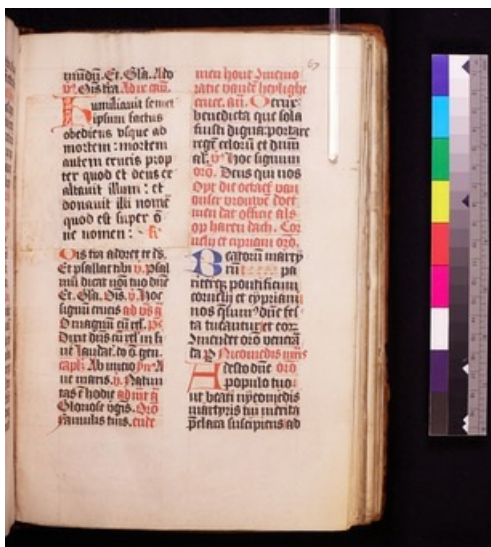 mūdū. Et. Gl̄a. Ad
v̄s. Ois tra. Ad ix. cap̄.
Humiliauit semet
ipsum factus
obediens vsque ad
mortem : mortem
autem crucis prop
ter quod et deus ex
altauit illum : et
donauit illi nomē
quod est super ō
ne nomen :
Ois tra adoret te ds̄.
Et psallat tibi v̄. psal
mū dicat nōi tuo dn̄e
Et. Gl̄a. Ois. v̄. Hoc
signū crucis ad v̄s ā
O magnū
nr̄ laudat. do q̄ gen.
capl̄. Ab inicio
te maris. v̄. Natiui
tas ē hodie
Gloriose v̄gīs. Or̄o
Famulis tuis. ende
men hout Inmemo
ratie vandē heylighe
cruce. añ. O crux
benedicta que sola
fuisti digna portare
regē celorū et dn̄m
al. v̄. Hoc signum
or̄o. Deus qui nos
Opt die octaef van
onser vrouwē doet
men dat officie als
op harē dach. Cor
nelij et cipriani or̄o.
Beatorū marty
rū pa
riterq; pontificum
cornelij et cypriani
nos q̄sum9 dn̄e fes
ta tueantur et com
mendet or̄o venerā
da p̄ Nicomedis
Adesto dn̄e or̄o
populo tuo
ut beati nycomedis
martyris tui merita
p̄clara suscipiens ad